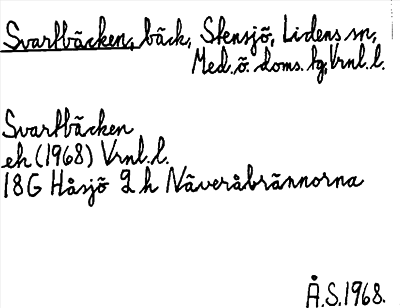 Svartbäcken, bäck, Stensjö, Lidens sn,
Med. ö. doms. fg, Vrnl. l.
Svartbäcken
ek (1968) Vrnl. l.
18G Håsjö 2 h Näveråbrännorna
Å.S. 1968.